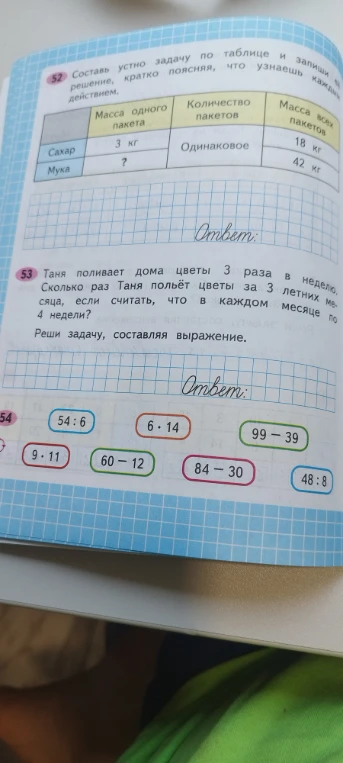 52 Составь устно задачу по таблице и запиши
решение, кратко поясняя, что узнаешь каждым
действием.
Масса одного пакета Количество пакетов Масса всех пакетов
Сахар 3 кг Одинаковое 18 кг
Мука ? 42 кг
Ответ:
53 Таня поливает дома цветы 3 раза в неделю.
Сколько раз Таня польёт цветы за 3 летних ме-
сяца, если считать, что в каждом месяце по
4 недели?
Реши задачу, составляя выражение.
Ответ:
54 54 : 6 6 · 14 99 − 39
9 · 11 60 − 12 84 − 30 48 : 8